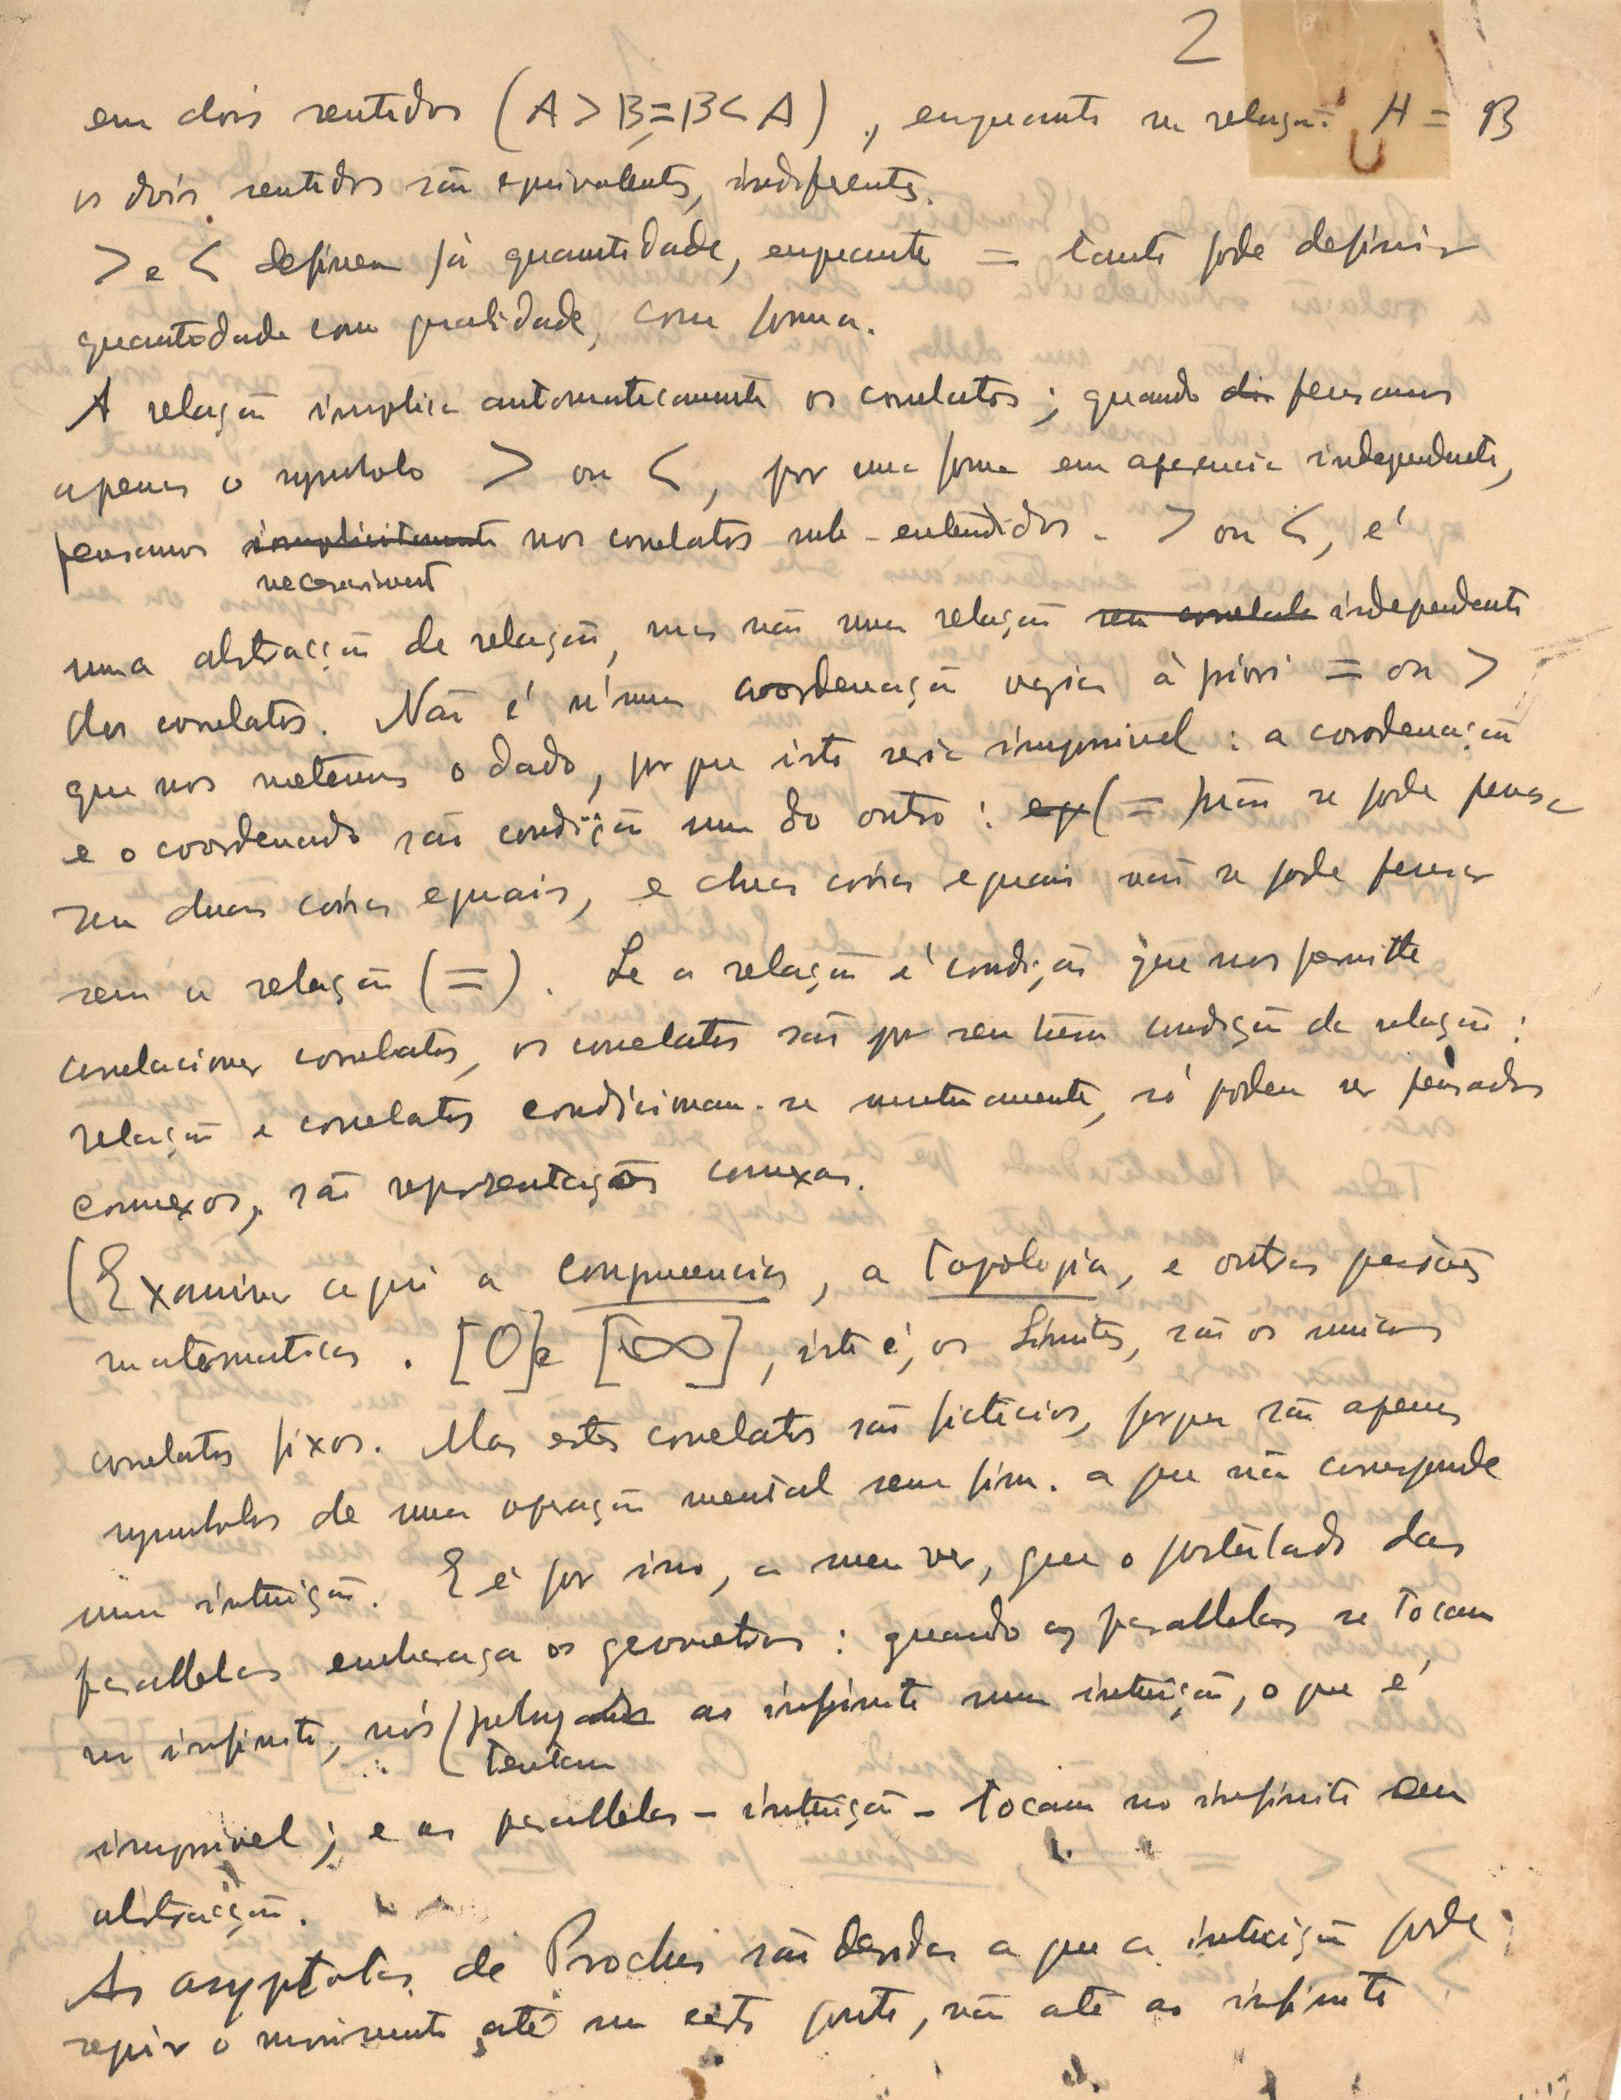 2
em dois sentidos (A > B = B < A), enquanto na relação A = B
os dois sentidos são equivalentes, indiferentes.
> e < definem já quantidade, enquanto = tanto pode definir
quantidade como qualidade, como forma.
A relação implica automaticamente os correlatos; quando dis pensamos
apenas o symbolo > ou <, por uma forma em aparencia independente,
pensamos implicitamente nos correlatos sub-entendidos. > ou <, é
necessariament
uma abstracção de relação, mas não uma relação sem correlato independente
dos correlatos. Não é n'uma coordenação vazia à priori = ou >
que nos metemos o dado, porque isto seria impossivel: a coordenação
e o coordenado são condição um do outro: (=) não se pode pensar
sem duas coisas eguais, e duas coisas eguais não se pode pensar
sem a relação (=). Se a relação é condição que nos permitte
correlacionar correlatos, os correlatos são por seu turno condição da relação:
relação e correlatos condicionam-se mutuamente, só podem ser pensados
connexos, são representações connexas.
(Examinar aqui a congruencia, a topologia, e outras
matematicas. [0] e [∞], isto é, os limites, são os unicos
correlatos fixos. Mas estes correlatos são ficticios, porque são apenas
symbolos de uma operação mental sem fim. a que não corresponde
uma intuição. E é por isso, a meu ver, que o postulado das
parallelas embaraça os geometras: quando as parallelas se tocam
no infinito, nós ao infinito uma intuição, o que é
tentam
impossivel; e as parallelas - intuição - tocam no infinito sem
abstracção.
As asyptotas de Proclus são a que a intuição pode
seguir o movimento até um certo ponto, não até ao infinito